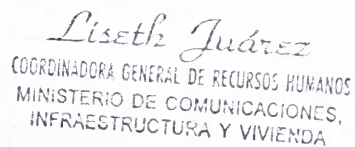 Liseth Juárez
COORDINADORA GENERAL DE RECURSOS HUMANOS
MINISTERIO DE COMUNICACIONES,
INFRAESTRUCTURA Y VIVIENDA